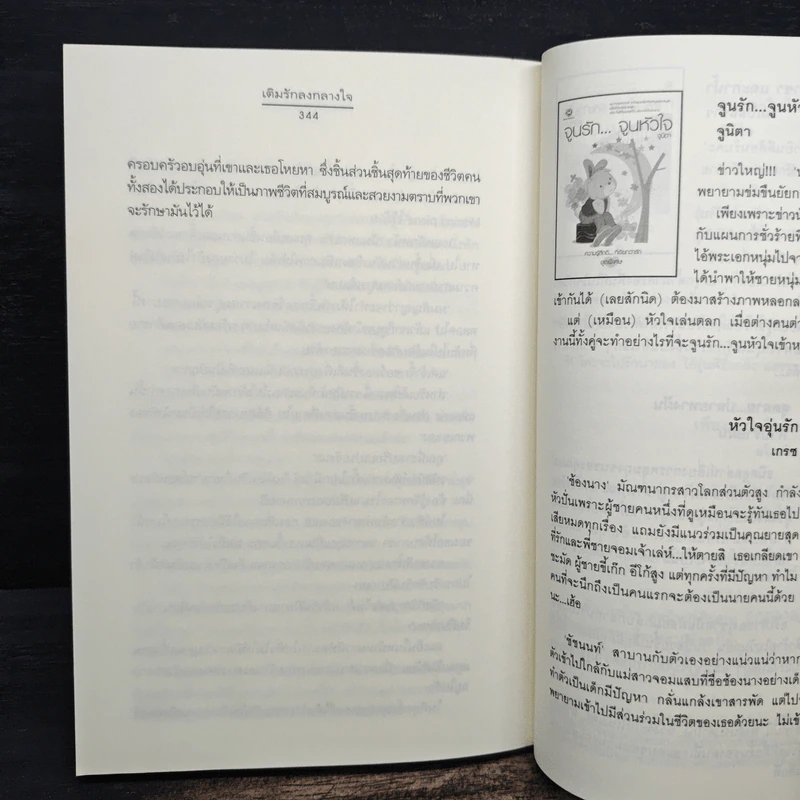 เติมรักลงกลางใจ
344
ครอบครัวอบอุ่นที่เขาและเธอโหยหา ซึ่งชิ้นส่วนชิ้นสุดท้ายของชีวิตคน
ทั้งสองได้ประกอบให้เป็นภาพชีวิตที่สมบูรณ์และสวยงามตราบที่พวกเขา
จะรักษามันไว้ได้
จูนรัก... จูนหัวใจ
จูนิตา
จูนรัก...จูนหั
จูนิตา
ข่าวใหญ่!!!
พยายามข่มขืนยัยก
เพียงเพราะข่าวบ้
กับแผนการชั่วร้ายที่
ไอ้พระเอกหนุ่มไปจา
ได้นำพาให้ชายหนุ่ม
เข้ากันได้ (เลยสักนิด) ต้องมาสร้างภาพหลอกล
แต่ (เหมือน) หัวใจเล่นตลก เมื่อต่างคนต่า
งานนี้ทั้งคู่จะทำอย่างไรที่จะจูนรัก...จูนหัวใจเข้าห
หัวใจอุ่นรัก
เกรซ
'ช้องนาง' มัณฑนากรสาวโลกส่วนตัวสูง กำลัง
หัวปั่นเพราะผู้ชายคนหนึ่งที่ดูเหมือนจะรู้ทันเธอไป
เสียหมดทุกเรื่อง แถมยังมีแนวร่วมเป็นคุณยายสุด
ที่รักและพี่ชายจอมเจ้าเล่ห์...ให้ตายสิ เธอเกลียดเขา
ชะมัด ผู้ชายขี้เก๊ก อีโก้สูง แต่ทุกครั้งที่มีปัญหา ทำไม
คนที่จะนึกถึงเป็นคนแรกจะต้องเป็นนายคนนี้ด้วย
นะ...เฮ้อ
'ชัชนนท์' สาบานกับตัวเองอย่างแน่วแน่ว่าหาก
ตัวเข้าไปใกล้กับแม่สาวจอมแสบที่ชื่อช้องนางอย่างเด็
ทำตัวเป็นเด็กมีปัญหา กลั่นแกล้งเขาสารพัด แต่ไป
พยายามเข้าไปมีส่วนร่วมในชีวิตของเธอด้วยนะ ไม่เข้